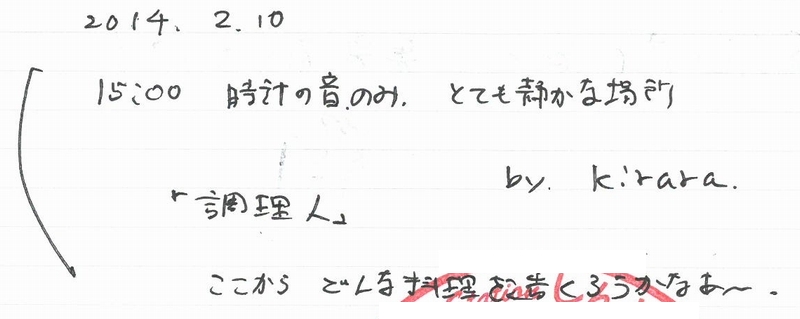 2014. 2.10
15:00 時計の音.のみ. とても静かな場所
by. kirara.
「調理人」
ここから どんな料理を造くろうかなあ〜.